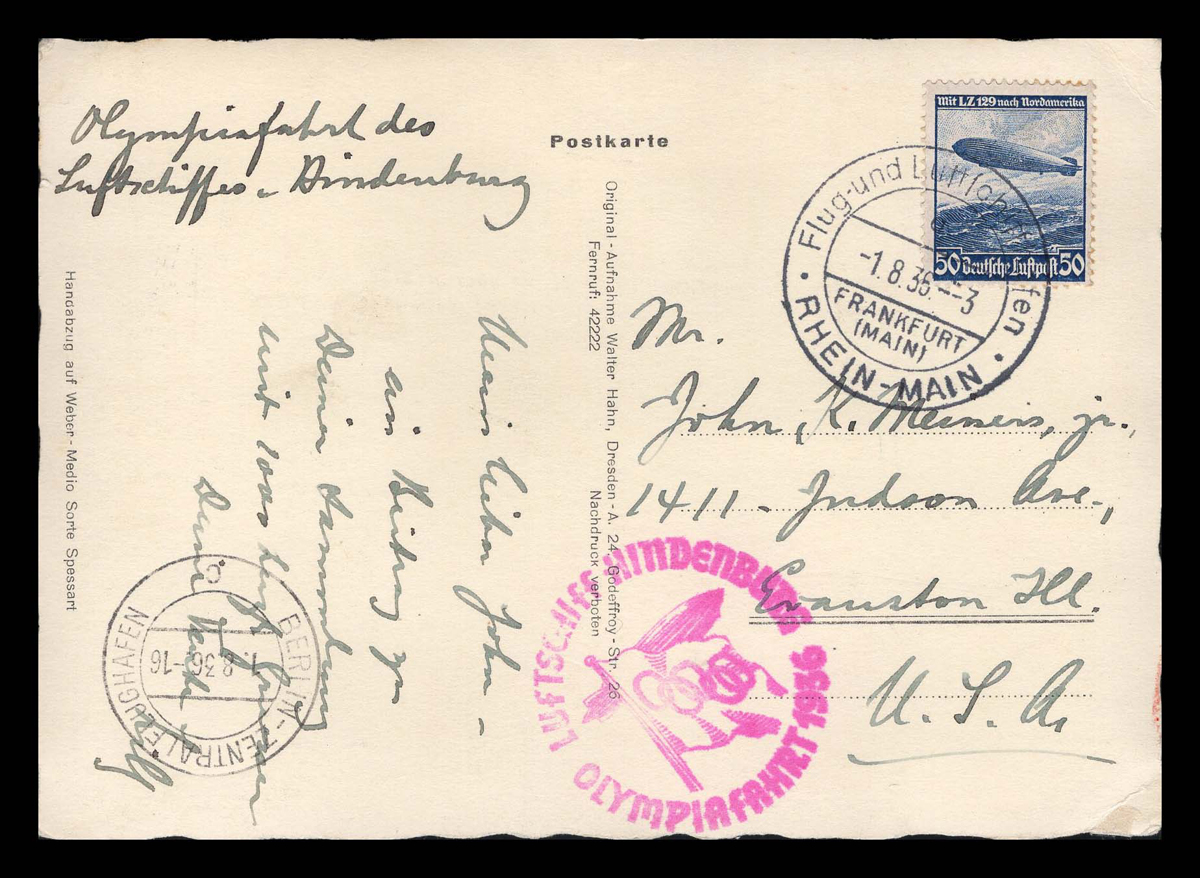 Olympiafahrt des
Luftschiffes „Hindenburg
Postkarte
Mit LZ 129 nach Nordamerika
50 Deutsche Luftpost 50
Flug-und Luftschiffhafen
-1.8.36.--3
FRANKFURT
(MAIN)
RHEIN-MAIN
Mr.
John K. Meiners, jr.,
1411. Judson Ave.,
Evanston Ill.
U. S. A.
Original-Aufnahme Walter Hahn, Dresden-A. 24, Godeffroy-Str. 26
Fernruf: 42222
Nachdruck verboten
Mein lieber John –
ein Beitrag zu
Deiner Sammlung
mit
Dein
Handabzug auf Weber-Medio Sorte Spessart
BERLIN-ZENTRALFLUGHAFEN
c
1.8.36.-16
LUFTSCHIFF HINDENBURG
OLYMPIAFAHRT 1936